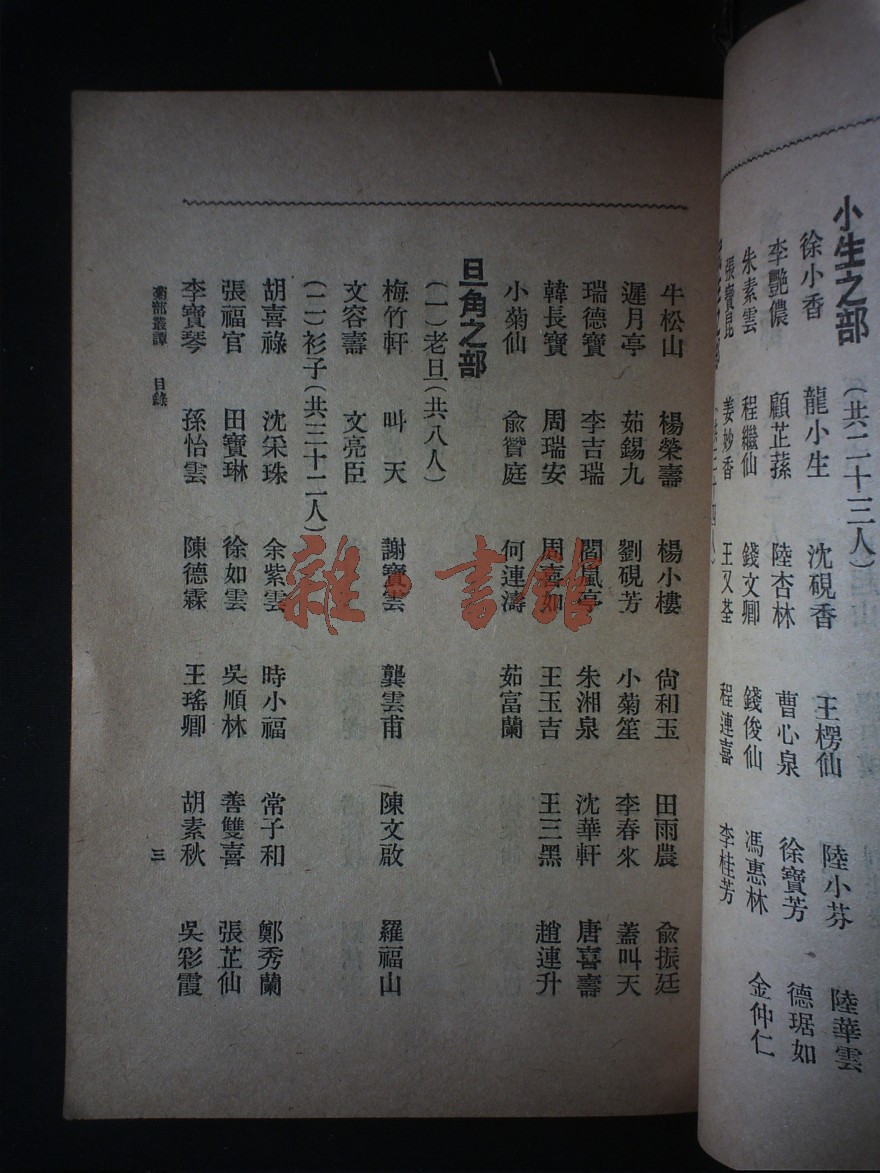 小生之部　(共二十三人)
徐小香　龍小生　沈硯香　王楞仙　陸小芬　陸華雲
李艷儂　顧芷蓀　陸杏林　曹心泉　徐寶芳　德琚如
朱素雲　程繼仙　錢文卿　錢俊仙　馮惠林　金仲仁
張寶昆　姜妙香　王又荃　程連喜　李桂芳
牛松山　楊榮壽　楊小樓　尙和玉　田雨農　兪振廷
遲月亭　茹錫九　劉硯芳　小菊笙　李春來　蓋叫天
瑞德寶　李吉瑞　閻嵐亭　朱湘泉　沈華軒　唐喜壽
韓長寶　周瑞安　周喜如　王玉吉　王三黑　趙連升
小菊仙　兪贊庭　何連濤　茹富蘭
旦角之部
(一)老旦(共八人)
梅竹軒　叫天　謝寶雲　龔雲甫　陳文啟　羅福山
文容壽　文亮臣
(二)衫子(共三十二人)
胡喜祿　沈采珠　余紫雲　時小福　常子和　鄭秀蘭
張福官　田寶琳　徐如雲　吳順林　善雙喜　張芷仙
李寶琴　孫怡雲　陳德霖　王瑤卿　胡素秋　吳彩霞
菊部叢譚　目錄
三
雜·書館